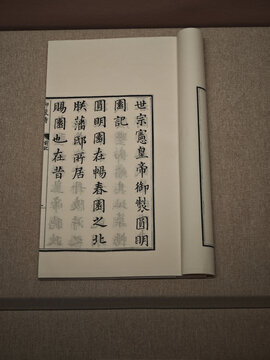 世宗憲皇帝御製圓明
園記
圓明園在暢春園之北
朕藩邸所居
賜園也在昔